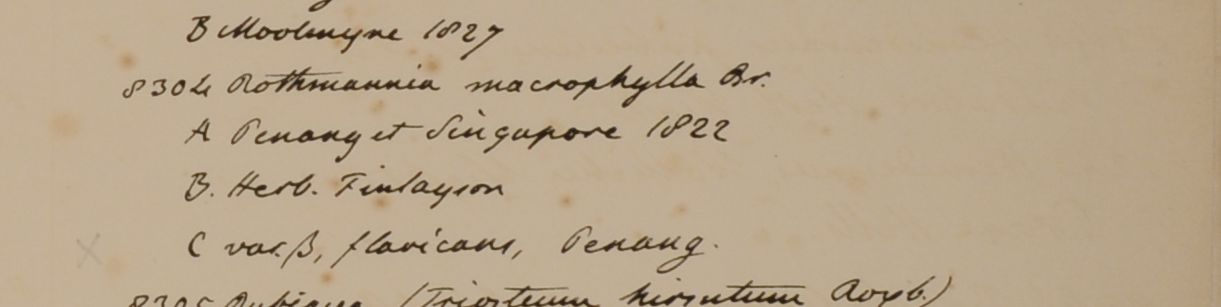 B Moolmyne 1827
8304 Rothmannia macrophylla Br.
A Penang et Singapore 1822
B. Herb. Finlayson
C var. β, flavicans, Penang.
8305 Rubiacea (Triosteum hirsutum Roxb.)